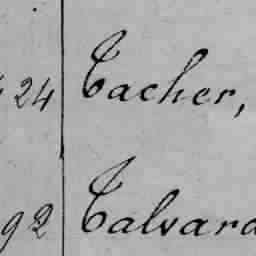 24 Tacher,
92 Talvard